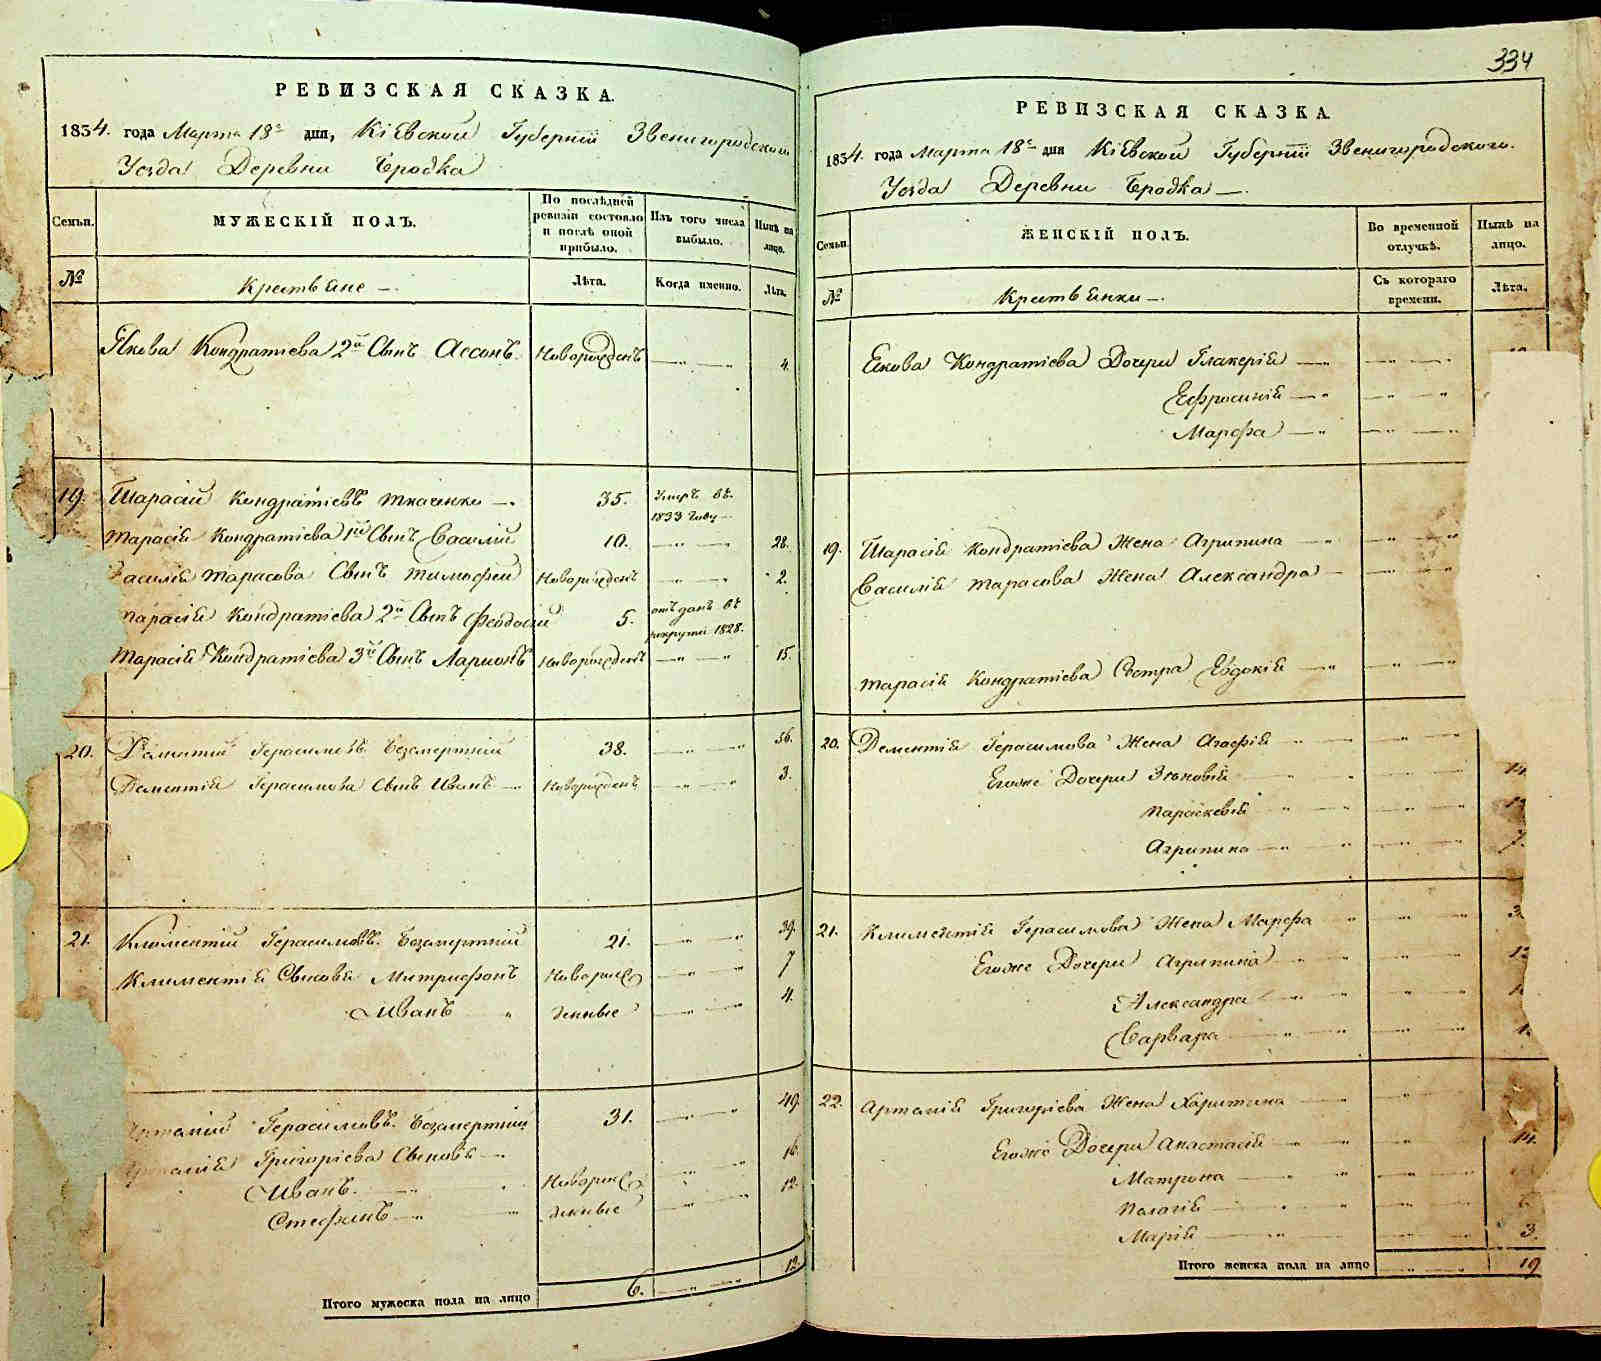 334
РЕВИЗСКАЯ СКАЗКА.
1834. года Марта 18го дня, Кіевской Губерніи Звенигородского
Уезда Деревни Бродка
Семьи.
МУЖЕСКІЙ ПОЛЪ.
По послѣдней ревизіи состояло и послѣ оной прибыло.
Изъ того числа выбыло.
Нынѣ на лицо.
№
Крестьяне
Лѣта.
Когда именно.
Лѣта.
Якова Кондратіева 2й Сынъ Ассонъ Новорожденъ 4.
19. Тарасій Кондратіевъ Ткаченко 35. Умеръ въ
1833 Году
Тарасія Кондратіева 1й Сынъ Василій 10. 28.
Василія Тарасова Сынъ Тимофей Новорожденъ 2.
Тарасія Кондратіева 2й Сынъ Феодосій 5. отъданъ въ
рекруты 1828.
Тарасія Кондратіева 3й Сынъ Ларионъ Новорожденъ 15.
20. Дементій Герасимовъ Безсмертній 38. 56.
Дементія Герасимова Сынъ Иванъ Новорожденъ 3.
21. Климентій Герасимовъ Безсмертній 21. 39.
Климентія Сыновя Митрофанъ Новорож 7
Иванъ денные 4.
Артемій Герасимовъ Безсмертній 31. 49.
Артемія Григоріева Сыновя
Иванъ Новорож 16.
Стефанъ денные 12.
Итого мужеска пола на лицо 6. 12.
РЕВИЗСКАЯ СКАЗКА.
1834. года Марта 18го дня Кіевской Губерніи Звенигородского.
Уезда Деревни Бродка
Семьи.
ЖЕНСКІЙ ПОЛЪ.
Во временной отлучкѣ.
Нынѣ на лицо.
№
Крестьянки
Съ котораго времени.
Лѣта.
Якова Кондратіева Дочери Гликерія
Ефросинія
Марфа
19. Тарасія Кондратіева Жена Агрипина
Василія Тарасова Жена Александра
Тарасія Кондратіева Сестра Евдокія
20. Дементія Герасимова Жена Агафія
Егоже Дочери Зѣновія 14.
Параскевія
Агрипина 7.
21. Климентія Герасимова Жена Марфа
Егоже Дочери Агрипина
Александра
Варвара
22. Артемія Григоріева Жена Харитина
Егоже Дочери Анастасія 14.
Матрона
Пелагія 6
Марія 3.
Итого женска пола на лицо 19